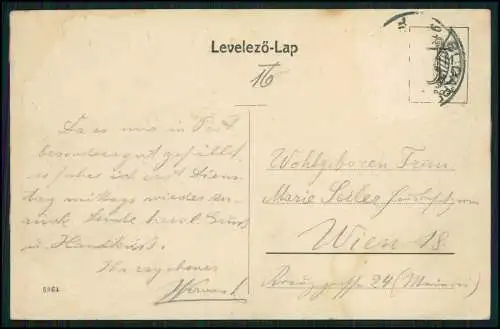 Levelező-Lap
16
Da es mir in Pest
besonders gut gefällt,
so fahre ich erst Diens-
tag mittags wieder zu-
rück. Sende herzl. Gruß
u. Handkuss.
Ihr ergebener
Wohlgeboren Frau
Marie Seiler
Wien 18.
Kreuzgasse 24 (Meierei)
6864